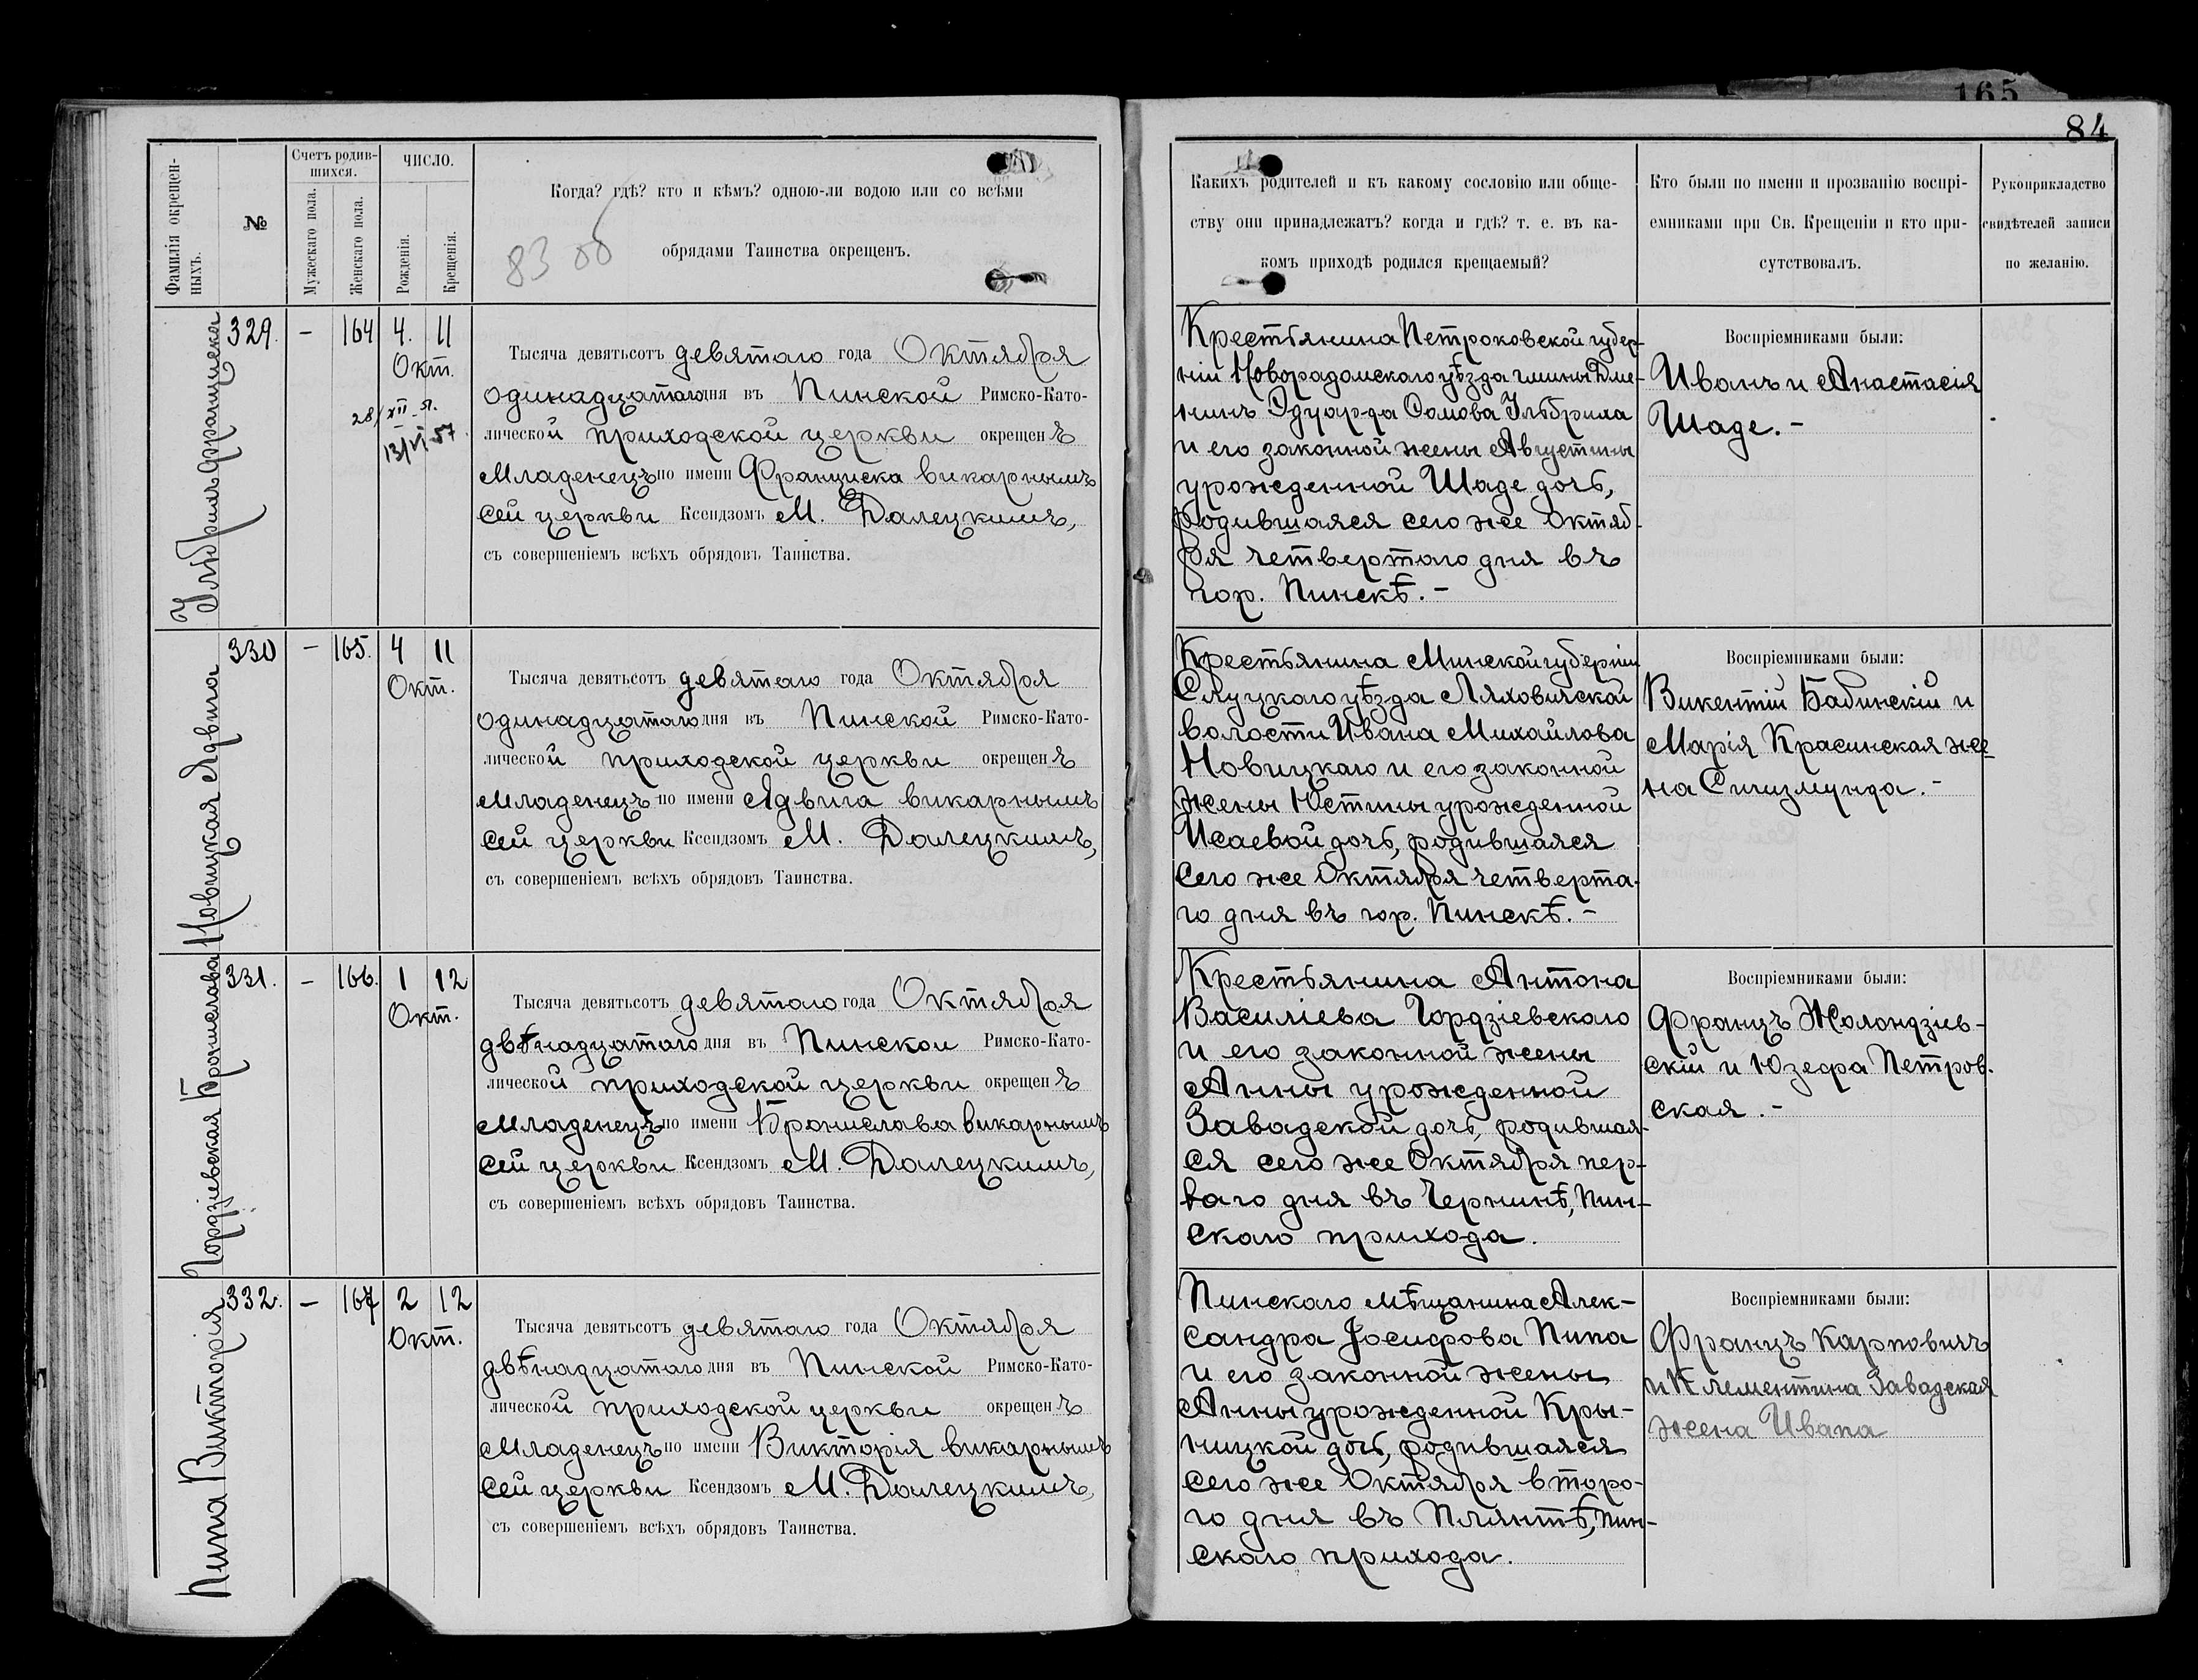 165
84
Фамилія окрещен-
ныхъ.
№
Счетъ родив-
шихся.
Мужескаго пола.
Женскаго пола.
ЧИСЛО.
Рожденія.
Крещенія.
Когда? гдѣ? кто и кѣмъ? одною-ли водою или со всѣми
обрядами Таинства окрещенъ.
Какихъ родителей и къ какому сословію или обще-
ству они принадлежатъ? когда и гдѣ? т. е. въ ка-
комъ приходѣ родился крещаемый?
Кто были по имени и прозванію воспрі-
емниками при Св. Крещеніи и кто при-
сутствовалъ.
Рукоприкладство
свидѣтелей записи
по желанію.
Ульбрихъ Франциска
329. – 164 4. 11
Окт.
Тысяча девятьсотъ девятаго года Октября
одинадцатаго дня въ Пинской Римско-Като-
лической приходской церкви окрещенъ
младенецъ по имени Франциска викарнымъ
сей церкви Ксендзомъ М. Далецкимъ,
съ совершеніемъ всѣхъ обрядовъ Таинства.
Крестьянина Петроковской губер-
ніи Новорадомскаго уѣзда гмины
Эдуарда Ульбриха
и его законной жены Августины
урожденной Шаде дочь,
родившаяся сего же Октяб-
ря четвертаго дня въ
гор. Пинскѣ.-
Воспріемниками были:
Иванъ и Анастасія
Шаде.-
Новицкая Ядвига
330 – 165. 4 11
Окт.
Тысяча девятьсотъ девятаго года Октября
одинадцатаго дня въ Пинской Римско-Като-
лической приходской церкви окрещенъ
младенецъ по имени Ядвига викарнымъ
сей церкви Ксендзомъ М. Далецкимъ,
съ совершеніемъ всѣхъ обрядовъ Таинства.
Крестьянина Минской губерніи
Слуцкаго уѣзда Ляховичской
волости Ивана Михайлова
Новицкаго и его законной
жены Юстины урожденной
Исаевой дочь, родившаяся
сего же Октября четверта-
го дня въ гор. Пинскѣ.-
Воспріемниками были:
Викентій Бабинскій и
Марія Красинская же-
на Сигизмунда.-
Гордзіевская Бронислава
331. – 166. 1 12
Окт.
Тысяча девятьсотъ девятаго года Октября
двѣнадцатаго дня въ Пинской Римско-Като-
лической приходской церкви окрещенъ
младенецъ по имени Бронислава викарнымъ
сей церкви Ксендзомъ М. Далецкимъ,
съ совершеніемъ всѣхъ обрядовъ Таинства.
Крестьянина Антона
Василіева Гордзіевскаго
и его законной жены
Анны урожденной
Завадской дочь, родившая-
ся сего же Октября пер-
ваго дня въ Чернинѣ, Пин-
скаго прихода.
Воспріемниками были:
Францъ Жолондзіев-
скій и Юзефа Петров-
ская.-
Пипа Викторія
332. – 167 2 12
Окт.
Тысяча девятьсотъ девятаго года Октября
двѣнадцатаго дня въ Пинской Римско-Като-
лической приходской церкви окрещенъ
младенецъ по имени Викторія викарнымъ
сей церкви Ксендзомъ М. Далецкимъ,
съ совершеніемъ всѣхъ обрядовъ Таинства.
Пинскаго мѣщанина Алек-
сандра Іосифова Пипа
и его законной жены
Анны урожденной Кры-
ницкой дочь, родившаяся
сего же Октября второ-
го дня въ Плянтѣ, Пин-
скаго прихода.
Воспріемниками были:
Францъ Карповичъ
и Клементина Завадская
жена Ивана